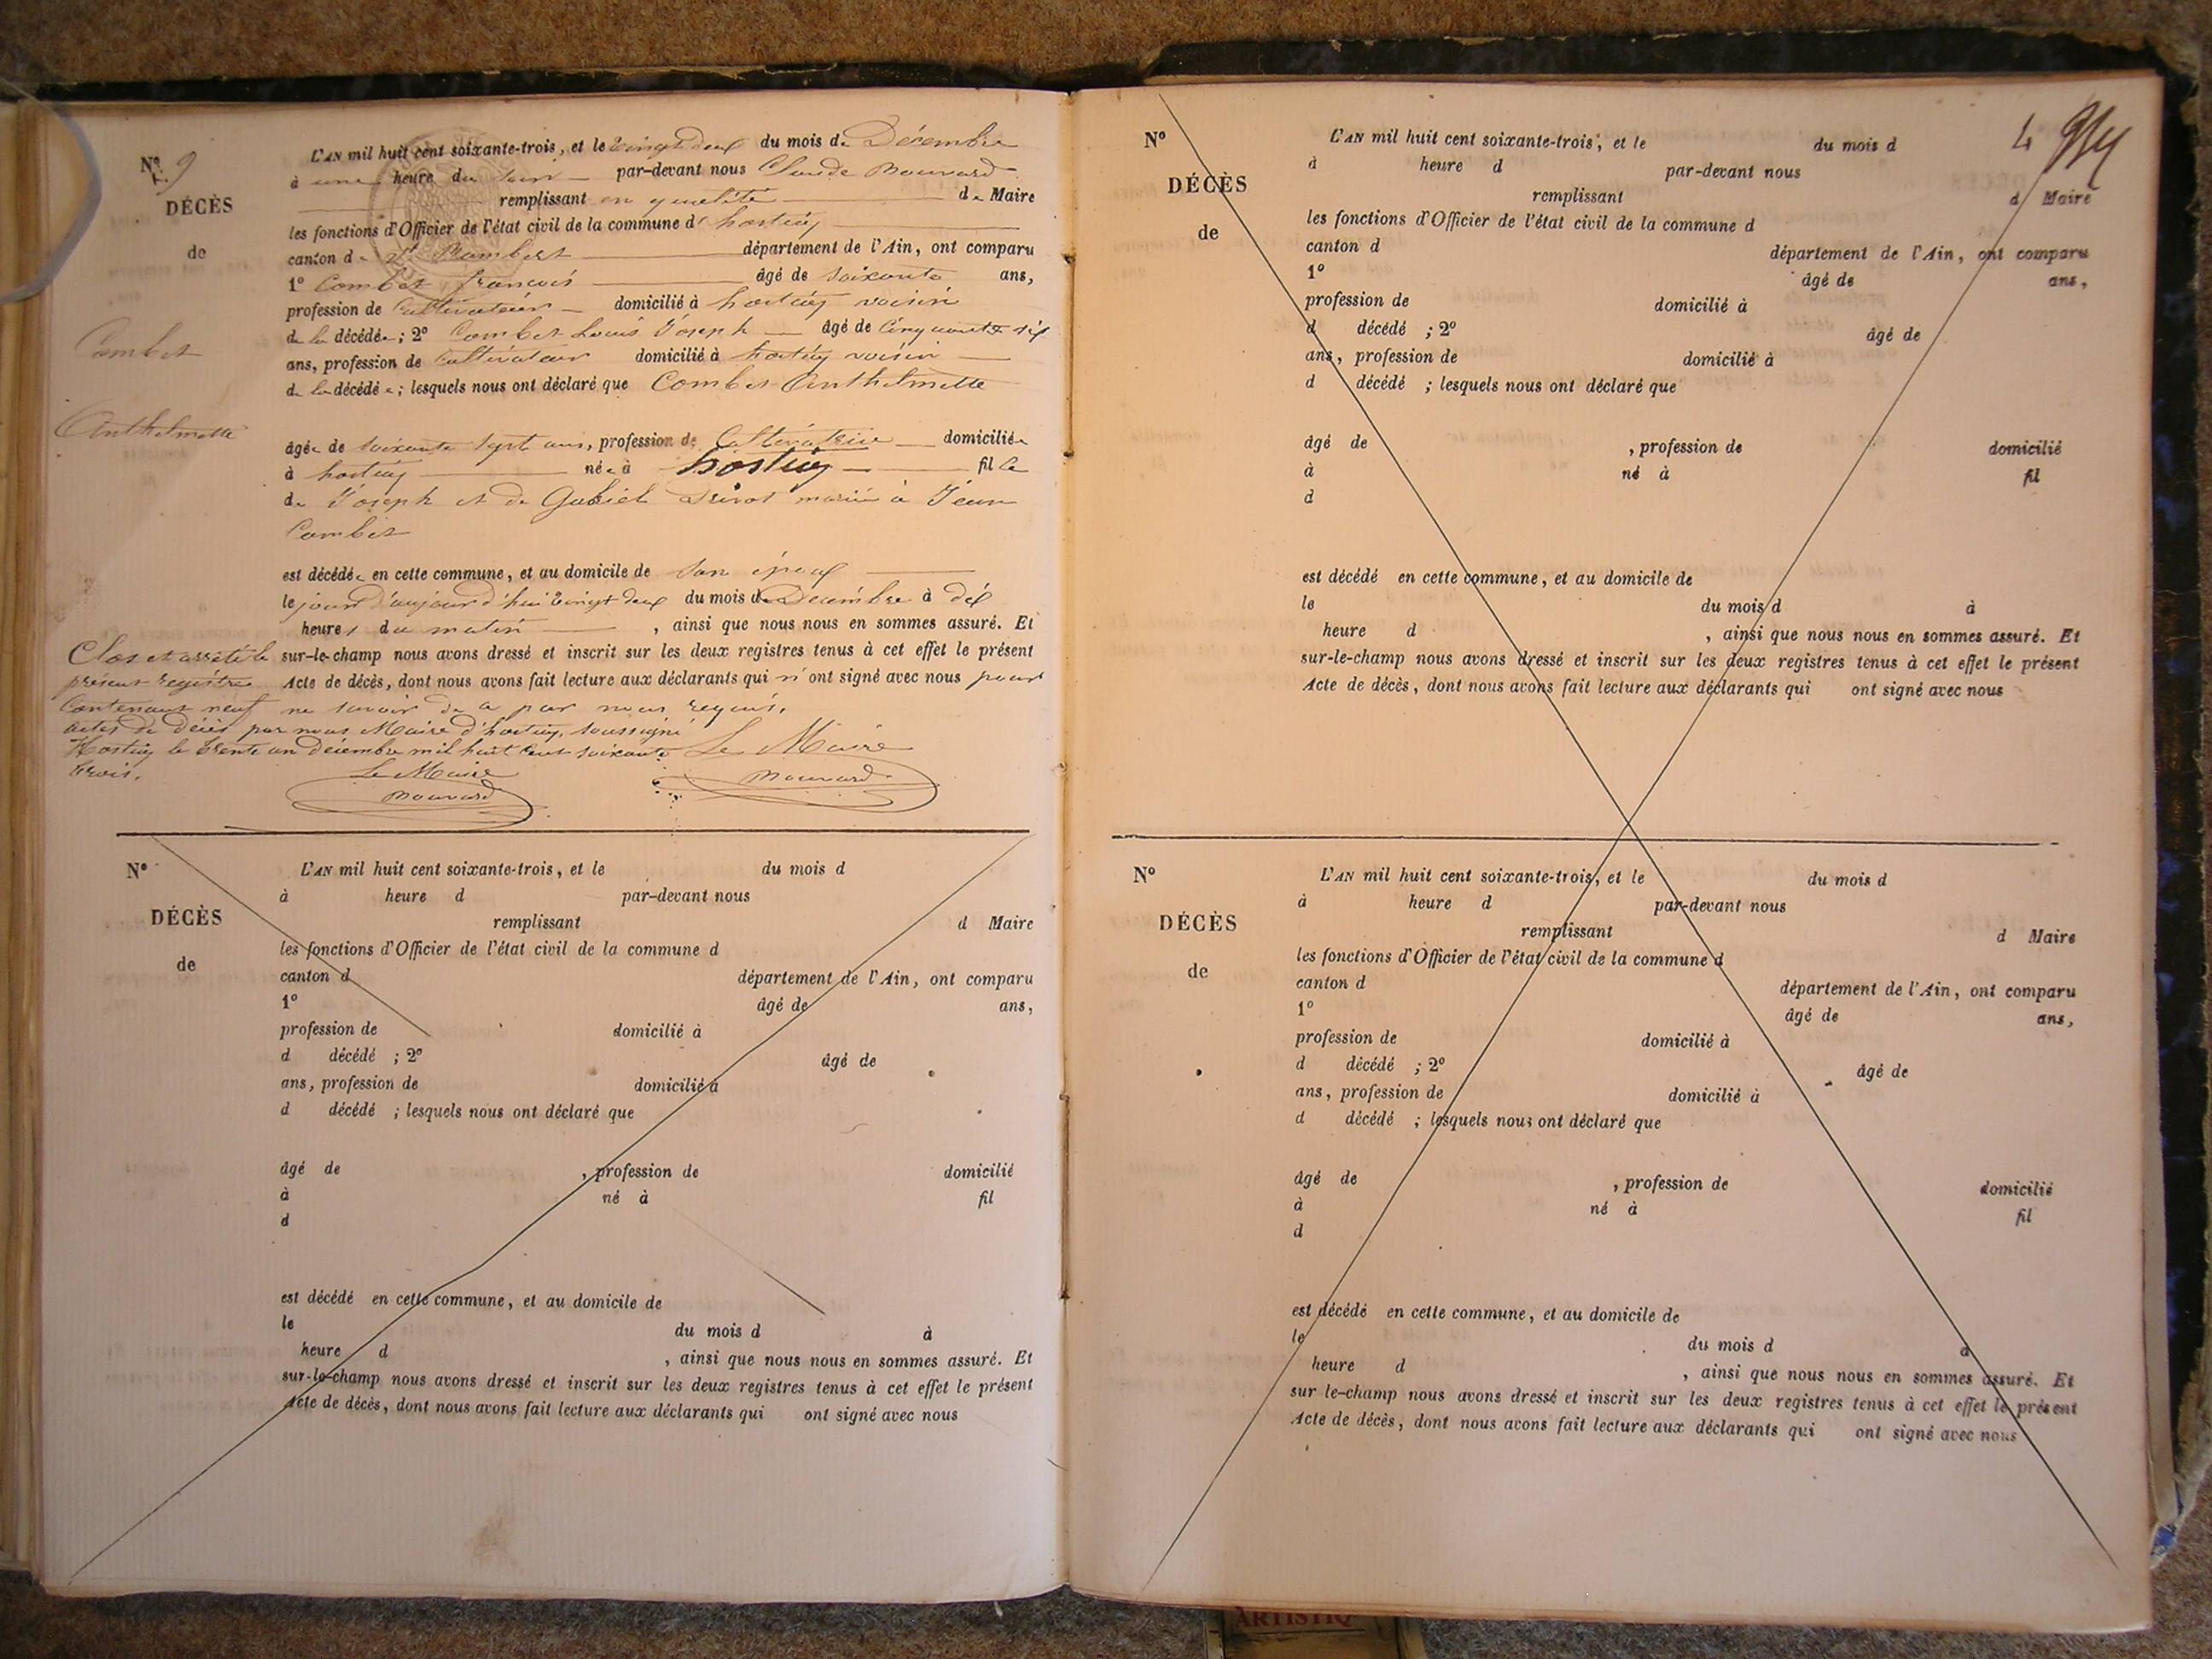 N° 9
DÉCÈS
de
Combet
Anthelmette
L'AN mil huit cent soixante-trois, et le vingt deux du mois de Décembre
à une heure du soir par-devant nous Claude Bouvard
remplissant en qualité de Maire
les fonctions d'Officier de l'état civil de la commune d' hostiaz
canton de St Rambert département de l'Ain, ont comparu
1° Combet françois âgé de soixante ans,
profession de Cultivateur domicilié à hostiaz voisin
de la décédée; 2° Combet Louis Joseph âgé de Cinquante six
ans, profession de Cultivateur domicilié à hostiaz voisin
de la décédée; lesquels nous ont déclaré que Combet Anthelmette
âgée de soixante sept ans, profession de Cultivatrice domiciliée
à hostiaz née à hostiaz fille
de Joseph et de Gabriel mariée à Jean
Combet
est décédée en cette commune, et au domicile de son époux
le jour d'aujourd'hui vingt deux du mois de Décembre à dix
heures du matin, ainsi que nous nous en sommes assuré. Et
sur-le-champ nous avons dressé et inscrit sur les deux registres tenus à cet effet le présent
Acte de décès, dont nous avons fait lecture aux déclarants qui n'ont signé avec nous pour
ne savoir de ce par nous requis.
Le Maire
Bouvard
Clos et arrêté le
présent registre
Contenant neuf
actes de décès par nous Maire d'hostiaz, soussigné
Hostiaz le trente un décembre mil huit cent soixante
trois.
Le Maire
Bouvard
N°
DÉCÈS
de
L'AN mil huit cent soixante-trois, et le du mois d
à heure d par-devant nous
remplissant d Maire
les fonctions d'Officier de l'état civil de la commune d
canton d département de l'Ain, ont comparu
1° âgé de ans,
profession de domicilié à
d décédé ; 2° âgé de
ans, profession de domicilié à
d décédé ; lesquels nous ont déclaré que
âgé de , profession de domicilié
à né à fil
d
est décédé en cette commune, et au domicile de
le du mois d à
heure d , ainsi que nous nous en sommes assuré. Et
sur-le-champ nous avons dressé et inscrit sur les deux registres tenus à cet effet le présent
Acte de décès, dont nous avons fait lecture aux déclarants qui ont signé avec nous
4
N°
DÉCÈS
de
L'AN mil huit cent soixante-trois, et le du mois d
à heure d par-devant nous
remplissant d Maire
les fonctions d'Officier de l'état civil de la commune d
canton d département de l'Ain, ont comparu
1° âgé de ans,
profession de domicilié à
d décédé ; 2° âgé de
ans, profession de domicilié à
d décédé ; lesquels nous ont déclaré que
âgé de , profession de domicilié
à né à fil
d
est décédé en cette commune, et au domicile de
le du mois d à
heure d , ainsi que nous nous en sommes assuré. Et
sur-le-champ nous avons dressé et inscrit sur les deux registres tenus à cet effet le présent
Acte de décès, dont nous avons fait lecture aux déclarants qui ont signé avec nous
N°
DÉCÈS
de
L'AN mil huit cent soixante-trois, et le du mois d
à heure d par-devant nous
remplissant d Maire
les fonctions d'Officier de l'état civil de la commune d
canton d département de l'Ain, ont comparu
1° âgé de ans,
profession de domicilié à
d décédé ; 2° âgé de
ans, profession de domicilié à
d décédé ; lesquels nous ont déclaré que
âgé de , profession de domicilié
à né à fil
d
est décédé en cette commune, et au domicile de
le du mois d à
heure d , ainsi que nous nous en sommes assuré. Et
sur le-champ nous avons dressé et inscrit sur les deux registres tenus à cet effet le présent
Acte de décès, dont nous avons fait lecture aux déclarants qui ont signé avec nous
ARTISTIQ